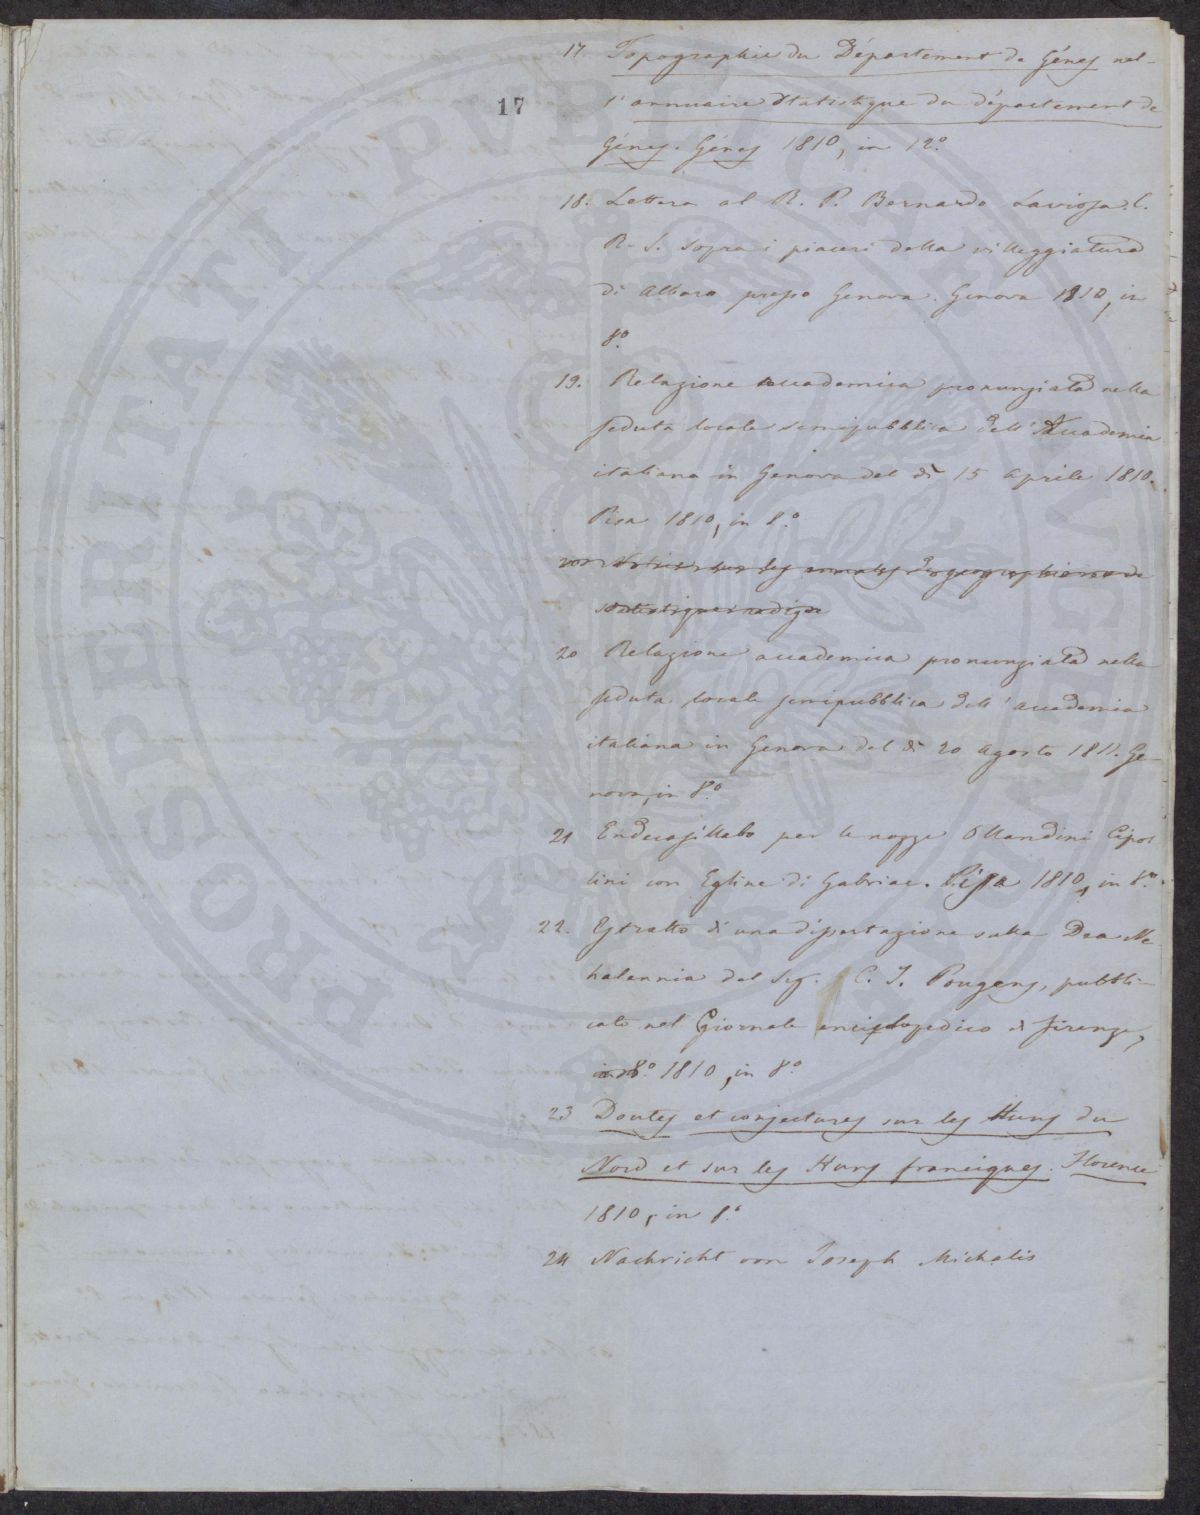 17
17. Topographie du Département de Gênes nel-
l'annuaire statistique du département de
Gênes. Gênes 1810, in 12.º
18. Lettera al R. P. Bernardo Laviosa. C.
R. S. sopra i piaceri della villeggiatura
di Albaro presso Genova. Genova 1810, in
8º
19. Relazione accademica pronunziata nella
seduta locale semipubblica dell'Accademia
italiana in Genova del dì 15 aprile 1810.
Pisa 1810, in 8.º
Notice sur les annales de geographie et de
statistique
20 Relazione accademica pronunziata nella
seduta locale semipubblica dell'accademia
italiana in Genova del dì 20 agosto 1811. Ge-
nova, in 8.º
21 Endecasillabo per le nozze Ollandini
con Egline di Gabriac. Pisa 1810, in 8.º
22. Estratto di una dissertazione sulla Dea Ne
halennia del Sig. C. J. Pougens, pubbli-
cato nel Giornale enciclopedico di Firenze,
in 8.º 1810, in 8.º
23 Doutes et conjectures sur les Huns du
Nord et sur les Huns franciques. Florence
1810, in 8.º
24 Nachricht von Joseph Michalis
PROSPERITATI PUBLICAE